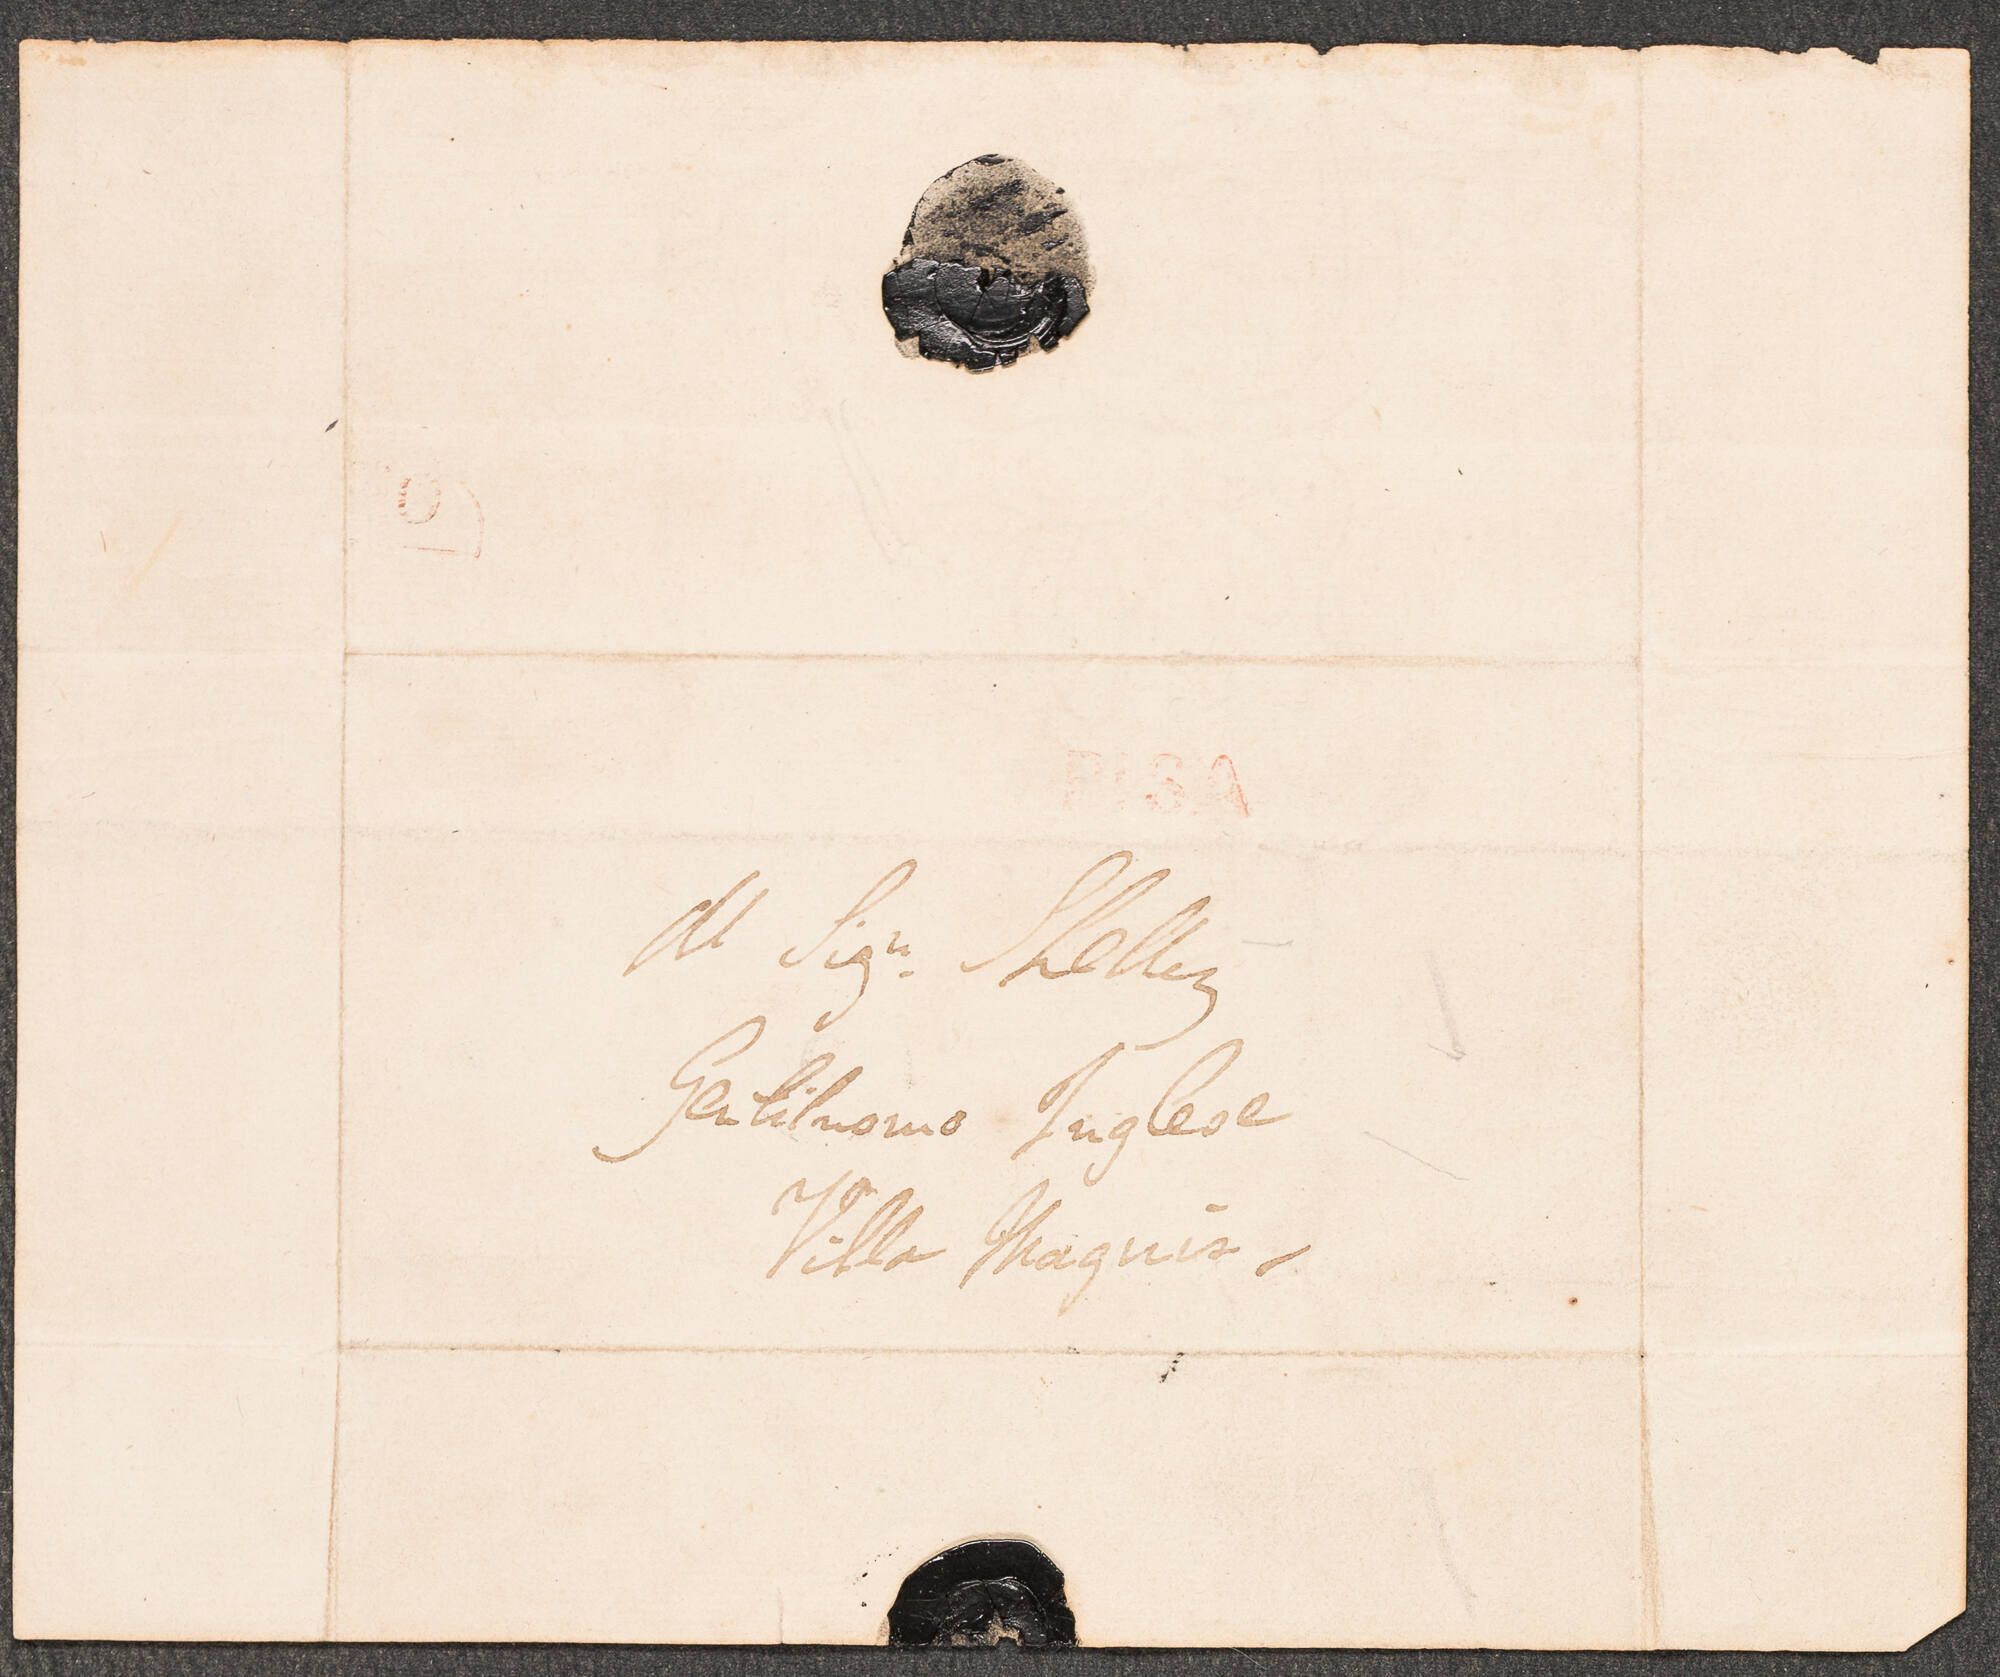 O
PISA
Al Sigr. Shelley
Gentiluomo Inglese
Villa Magnis,